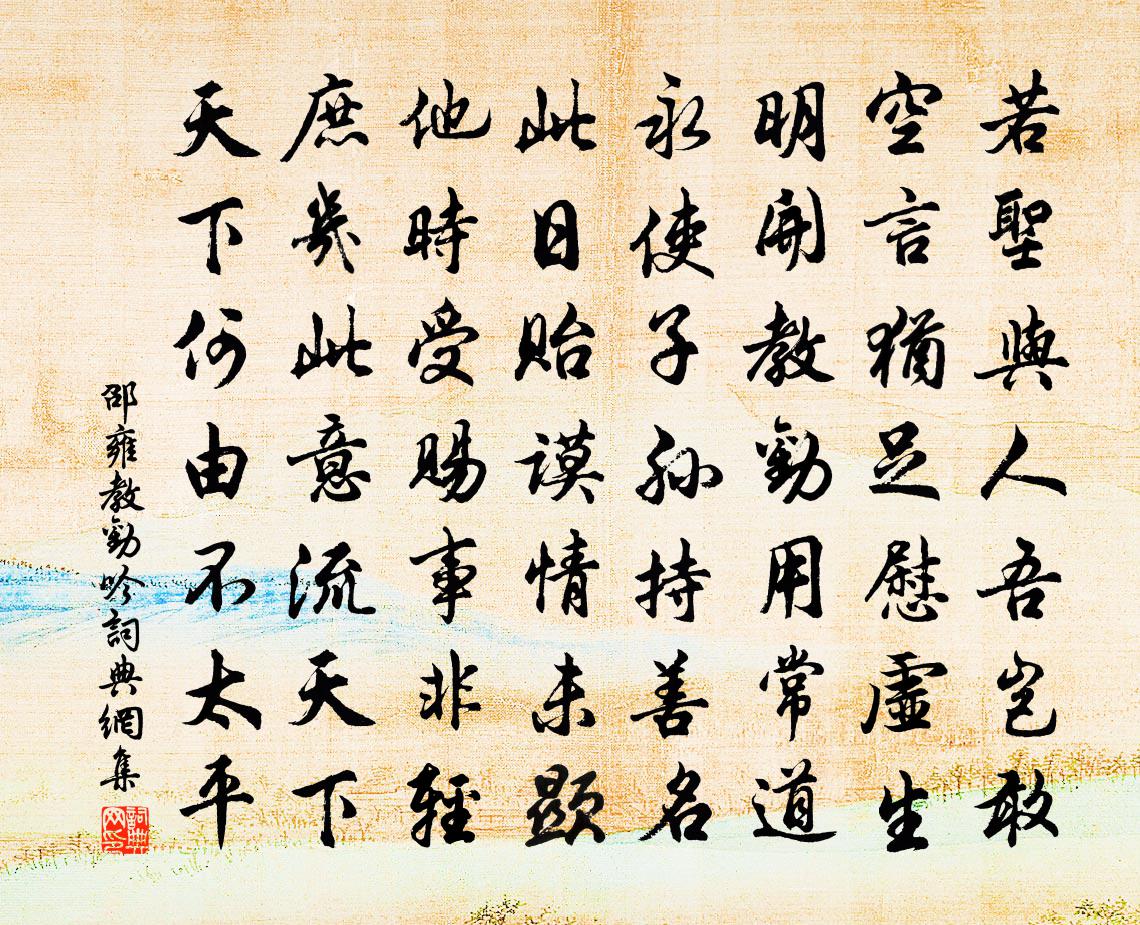 若聖與人吾豈敢
空言猶足慰虛生
明開教勸用常道
永使子孫持善名
此日貽謨情未顯
他時受賜事非輕
庶幾此意流天下
天下何由不太平
邵雍教勸吟詞典網集
詞典网印